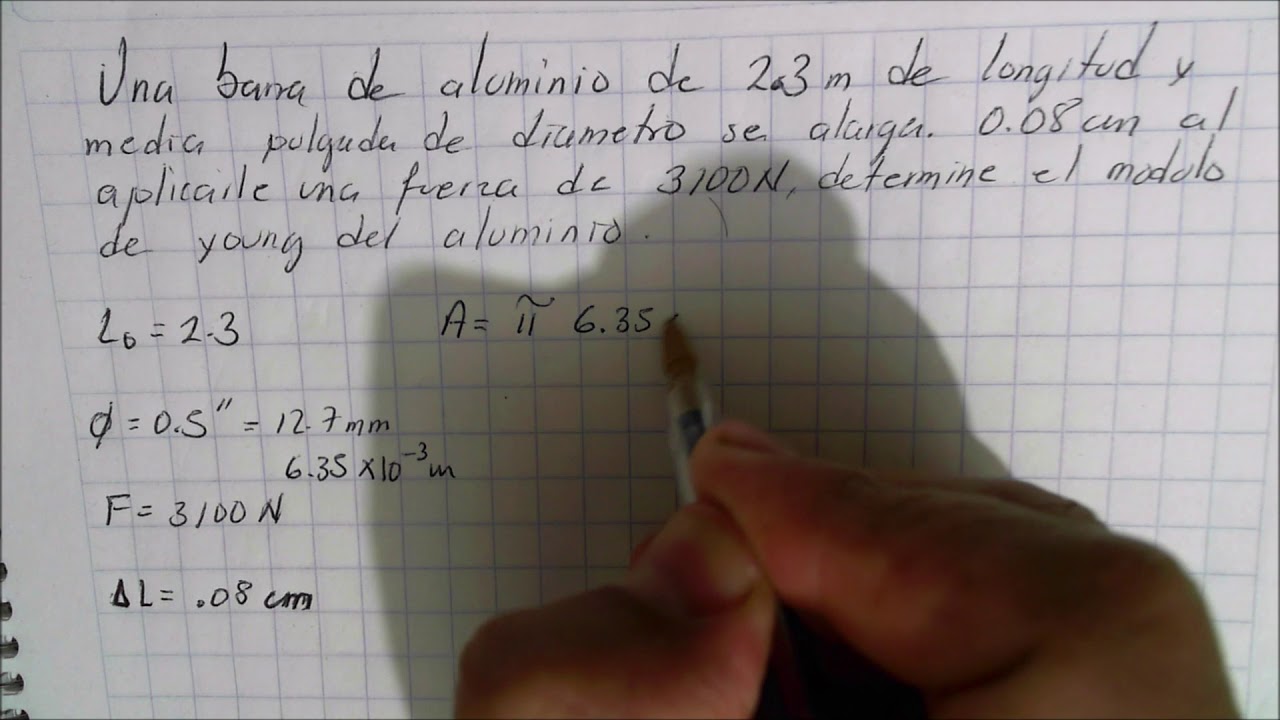 Una barra de aluminio de 2.3 m de longitud y
media pulgada de diametro se alarga. 0.08 cm al
aplicarle una fuerza de 3100 N, determine el modulo
de young del aluminio.
L₀ = 2.3
A = π 6.35
φ = 0.5" = 12.7 mm
6.35 x10⁻³ m
F = 3100 N
ΔL = .08 cm